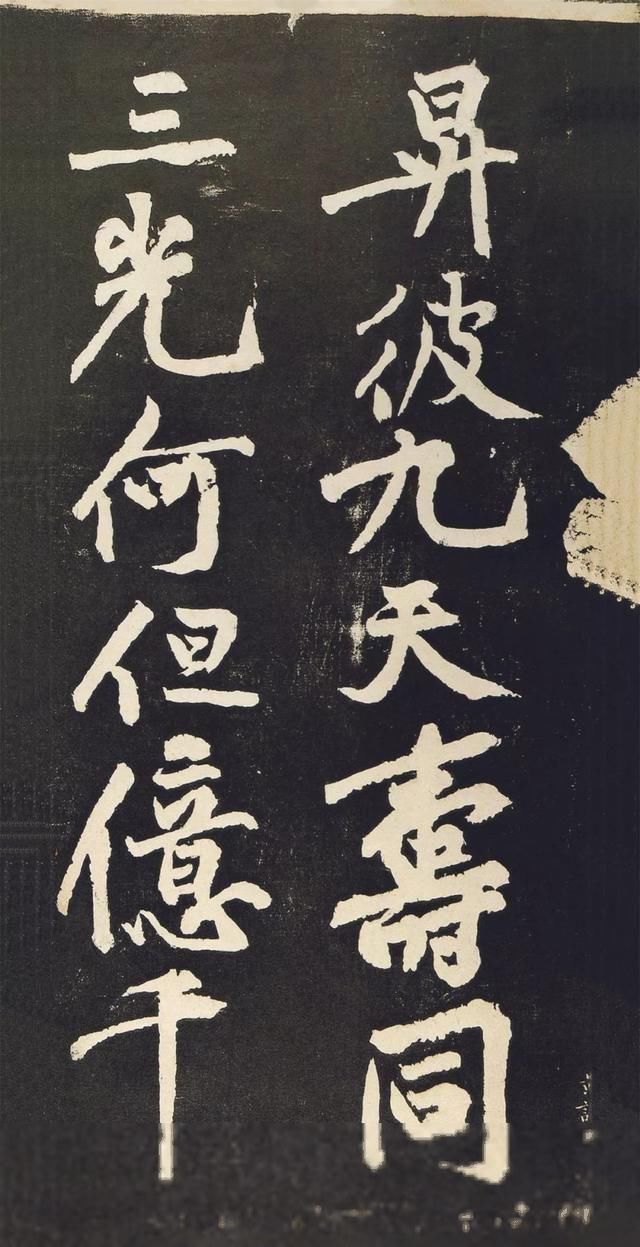 昇彼九天壽同
三光何但億千